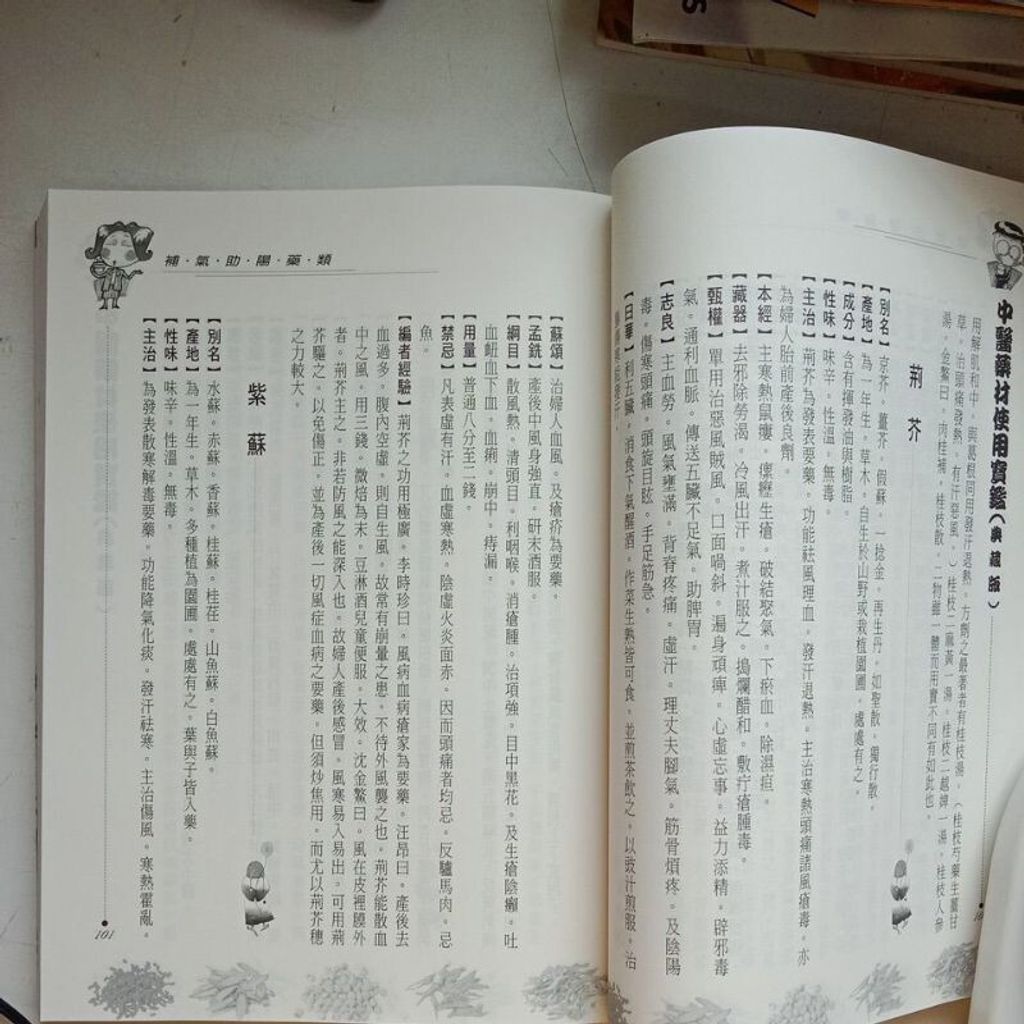 中醫藥材使用寶鑑(典藏版)
用解肌和中。與葛根同用發汗退熱。方劑之最著者有桂枝湯。(桂枝芍藥生薑甘
草。治頭痛發熱。有汗惡風。)桂枝二麻黃一湯。桂枝二越婢一湯。桂枝人參
湯。金鰲曰。肉桂補。桂枝散。二物雖一體而用實不同有如此也。
荊芥
【別名】京芥。薑芥。假蘇。一捻金。再生丹。如聖散。獨行散。
【產地】為一年生。草木。自生於山野或栽植園圃。處處有之。
【成分】含有揮發油與樹脂。
【性味】味辛。性溫。無毒。
【主治】荊芥為發表要藥。功能祛風理血。發汗退熱。主治寒熱頭痛諸風瘡毒。亦
為婦人胎前產後良劑。
【本經】主寒熱鼠瘻。瘰癧生瘡。破結聚氣。下瘀血。除濕疸。
【藏器】去邪除勞渴。冷風出汗。煮汁服之。搗爛醋和。敷疔瘡腫毒。
【甄權】單用治惡風賊風。口面喎斜。遍身頑痺。心虛忘事。益力添精。辟邪毒
氣。通利血脈。傳送五臟不足氣。助脾胃。
【志良】主血勞。風氣壅滿。背脊疼痛。虛汗。理丈夫腳氣。筋骨煩疼。及陰陽
毒。傷寒頭痛。頭旋目眩。手足筋急。
【日華】利五臟。消食下氣醒酒。作菜生熟皆可食。並煎茶飲之。以豉汁煎服。治
補·氣·助·陽·藥·類
【蘇頌】治婦人血風。及瘡疥為要藥。
【孟銑】產後中風身強直。研末酒服。
【綱目】散風熱。清頭目。利咽喉。消瘡腫。治項強。目中黑花。及生瘡陰癩。吐
血衄血下血。血痢。崩中。痔漏。
【用量】普通八分至二錢。
【禁忌】凡表虛有汗。血虛寒熱。陰虛火炎面赤。因而頭痛者均忌。反驢馬肉。忌
魚。
【編者經驗】荊芥之功用極廣。李時珍曰。風病血病瘡家為要藥。汪昂曰。產後去
血過多。腹內空虛。則自生風。故常有崩暈之患。不待外風襲之也。荊芥能散血
中之風。用三錢。微焙為末。豆淋酒兒童便服。大效。沈金鰲曰。風在皮裡膜外
者。荊芥主之。非若防風之能深入也。故婦人產後感冒。風寒易入易出。可用荊
芥驅之。以免傷正。並為產後一切風症血病之要藥。但須炒焦用。而尤以荊芥穗
之力較大。
紫蘇
【別名】水蘇。赤蘇。香蘇。桂蘇。桂荏。山魚蘇。白魚蘇。
【產地】為一年生。草木。多種植為園圃。處處有之。葉與子皆入藥。
【性味】味辛。性溫。無毒。
【主治】為發表散寒解毒要藥。功能降氣化痰。發汗祛寒。主治傷風。寒熱霍亂。
101